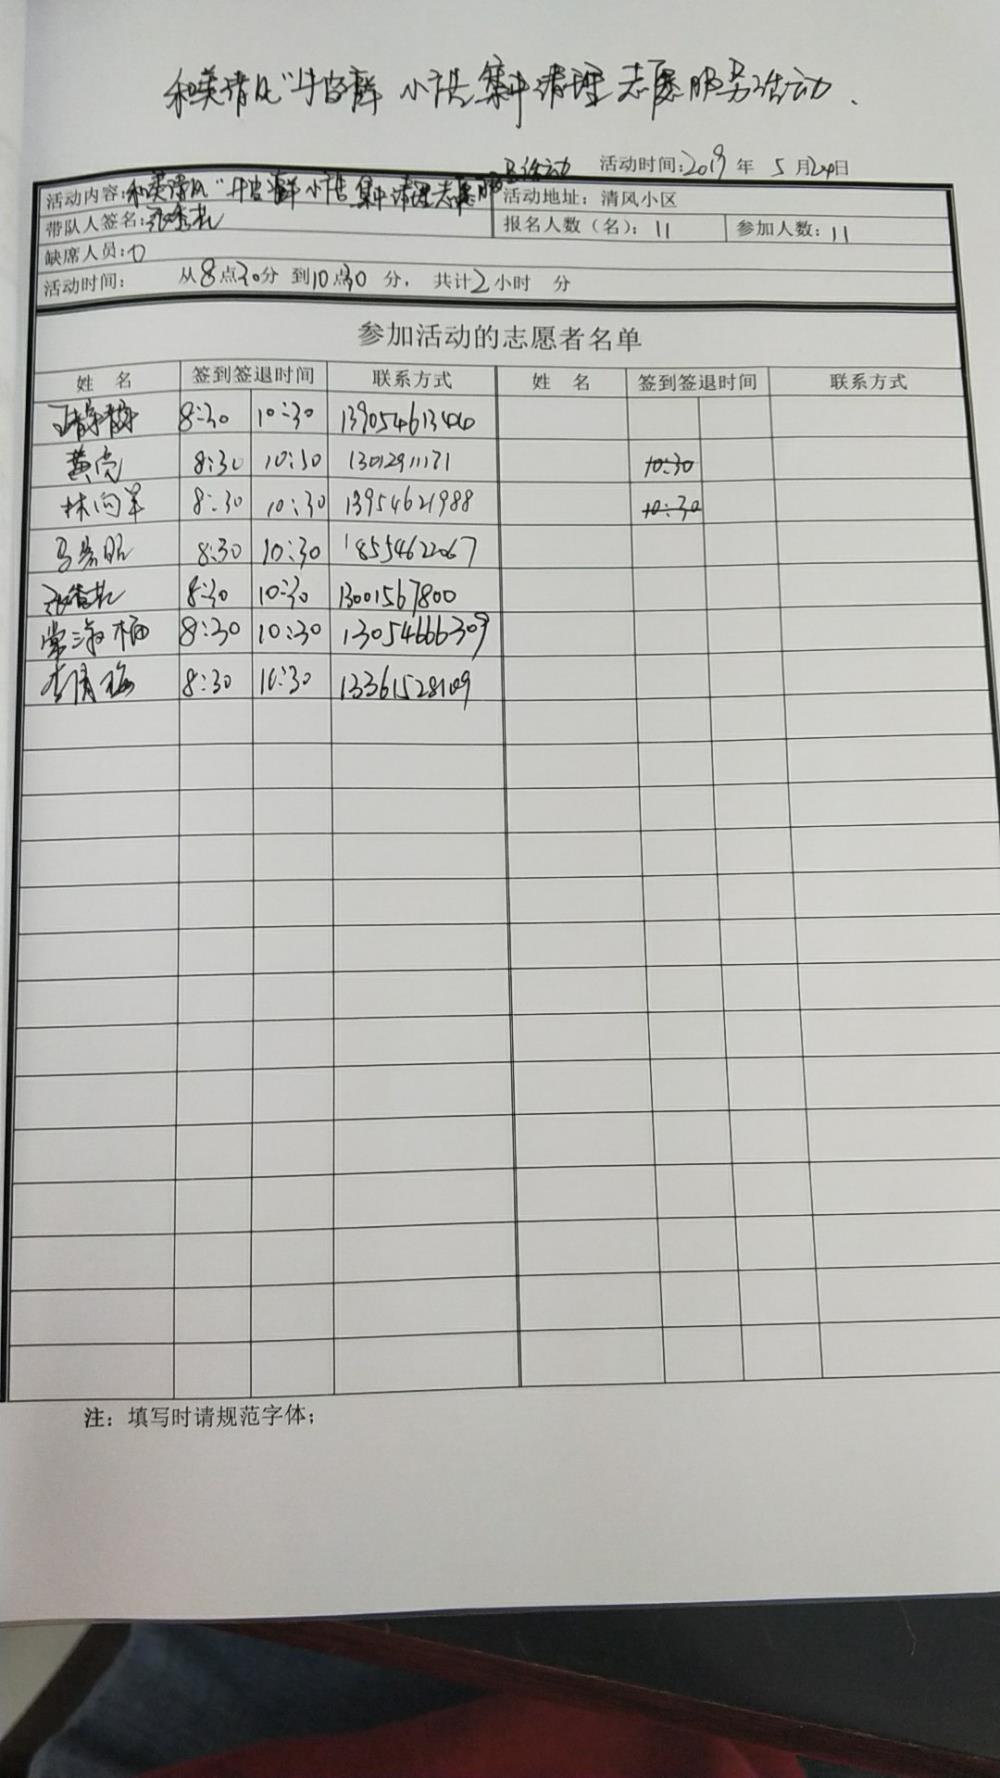 和英清风"牛皮癣"小广告集中清理志愿服务活动.
活动时间:2019年 5月20日
活动内容:和英清风"牛皮癣"小广告集中清理志愿服务活动 活动地址：清风小区
带队人签名: 报名人数（名）：11 参加人数：11
缺席人员:0
活动时间： 从8点30分 到10点30分， 共计2小时 分
参加活动的志愿者名单
姓 名 签到签退时间 联系方式 姓 名 签到签退时间 联系方式
8:30 10:30
黄亮 8:30 10:30 13012911171 10:30
林向羊 8:30 10:30 13954621988 10:30
8:30 10:30 18554622067
8:30 10:30 13001567800
常海桶 8:30 10:30 13054666309
李清梅 8:30 10:30 13361528109
注：填写时请规范字体；